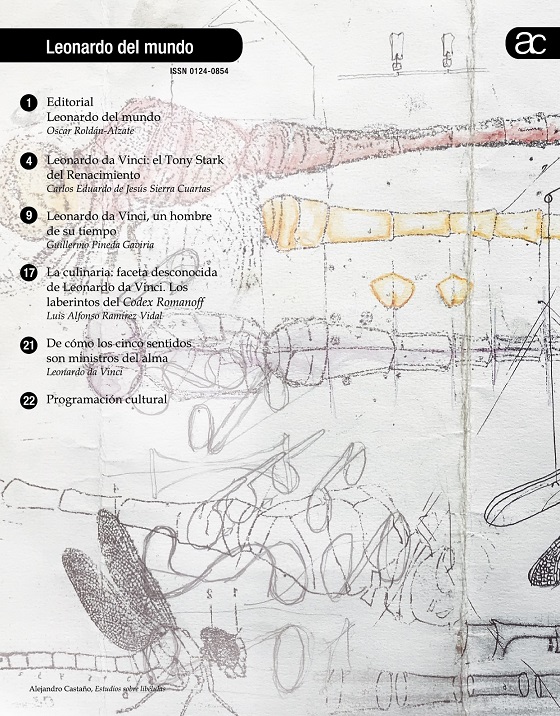 Leonardo del mundo
ac
ISSN 0124-0854
1 Editorial
Leonardo del mundo
Oscar Roldán-Alzate
4 Leonardo da Vinci: el Tony Stark
del Renacimiento
Carlos Eduardo de Jesús Sierra Cuartas
9 Leonardo da Vinci, un hombre
de su tiempo
Guillermo Pineda Gaviria
17 La culinaria: faceta desconocida
de Leonardo da Vinci. Los
laberintos del Codex Romanoff
Luis Alfonso Ramírez Vidal
21 De cómo los cinco sentidos
son ministros del alma
Leonardo da Vinci
22 Programación cultural
Alejandro Castaño, Estudios sobre libélulas